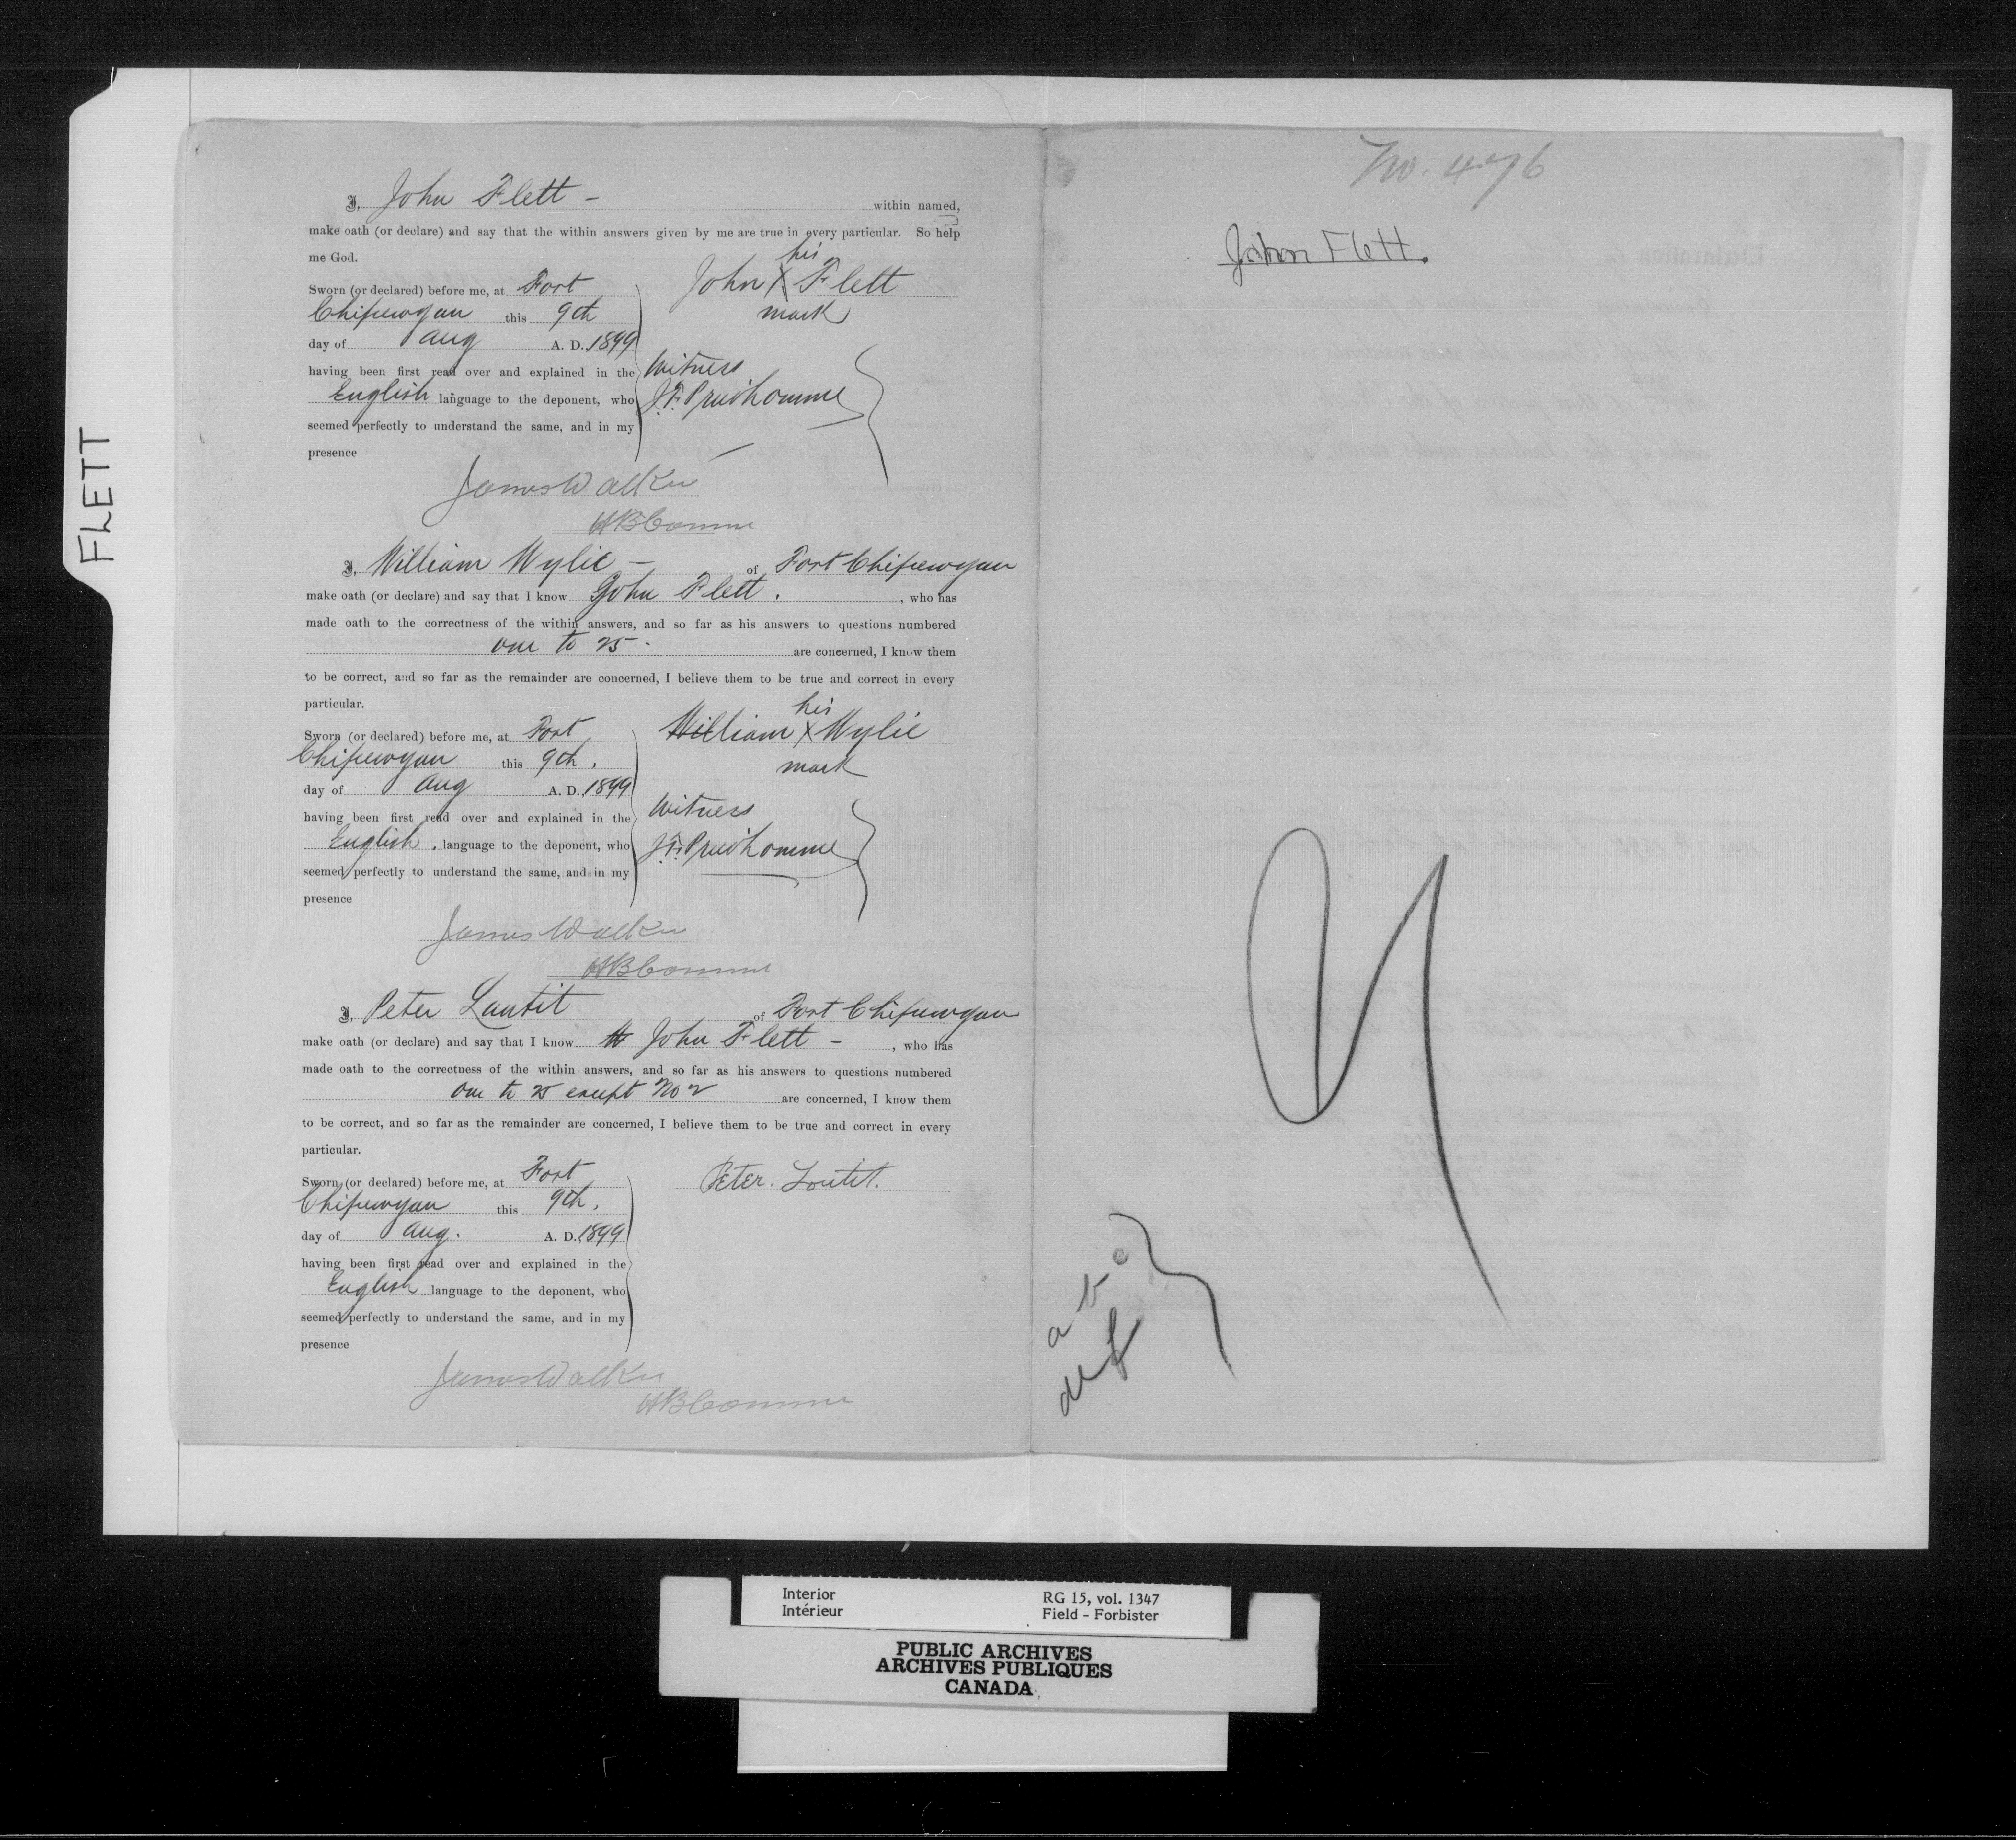 FLETT
I, John Flett - within named,
make oath (or declare) and say that the within answers given by me are true in every particular. So help
me God.
his
John X Flett
mark
Sworn (or declared) before me, at Fort
Chipewyan this 9th
day of Aug A. D. 1899
having been first read over and explained in the
English language to the deponent, who
seemed perfectly to understand the same, and in my
presence
Witness
J.F. Prudhomme
James Walker
HBComme
I, William Wylie - of Fort Chipewyan
make oath (or declare) and say that I know John Flett. , who has
made oath to the correctness of the within answers, and so far as his answers to questions numbered
one to 25 - are concerned, I know them
to be correct, and so far as the remainder are concerned, I believe them to be true and correct in every
particular.
his
William X Wylie
mark
Sworn (or declared) before me, at Fort
Chipewyan this 9th.
day of Aug A. D. 1899
having been first read over and explained in the
English. language to the deponent, who
seemed perfectly to understand the same, and in my
presence
Witness
J.F. Prudhomme
James Walker
HBComme
I, Peter Loutit of Fort Chipewyan
make oath (or declare) and say that I know John Flett - , who has
made oath to the correctness of the within answers, and so far as his answers to questions numbered
one to 25 except No 2 are concerned, I know them
to be correct, and so far as the remainder are concerned, I believe them to be true and correct in every
particular.
Peter. Loutit.
Sworn (or declared) before me, at Fort
Chipewyan this 9th.
day of Aug. A. D. 1899
having been first read over and explained in the
English language to the deponent, who
seemed perfectly to understand the same, and in my
presence
James Walker
HBComme
No. 476
John Flett.
a b c
d e f
Interior
Intérieur
RG 15, vol. 1347
Field - Forbister
PUBLIC ARCHIVES
ARCHIVES PUBLIQUES
CANADA